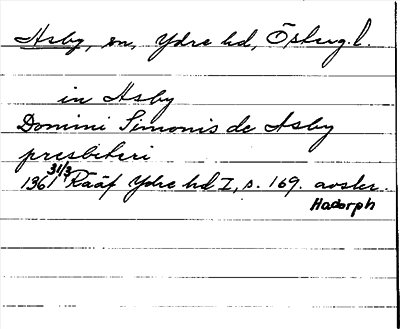 Asby, sn, Ydre hd, Österg. l.
in Asby
Domini Simonis de Asby
presbiteri
1361 31/3 Rääf Ydre hd I, s. 169. avskr.
Hadorph